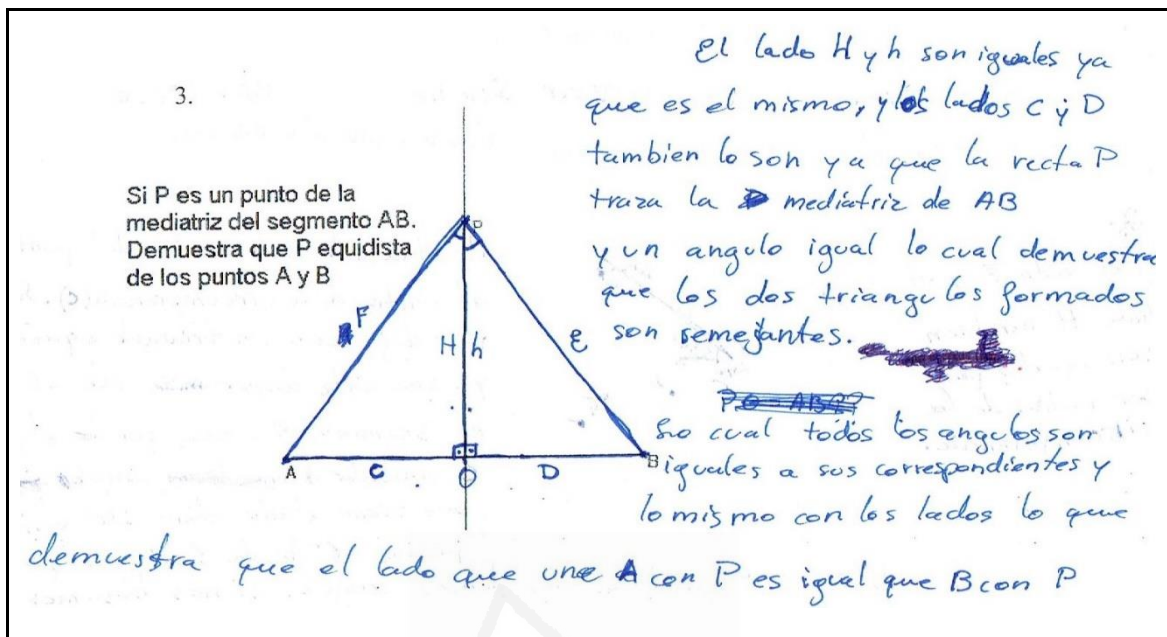 3.
Si P es un punto de la
mediatriz del segmento AB.
Demuestra que P equidista
de los puntos A y B
P
F
H h
E
A
C
O
D
B
El lado H y h son iguales ya
que es el mismo, y los lados C y D
tambien lo son ya que la recta P
traza la mediatriz de AB
y un angulo igual lo cual demuestra
que los dos triangulos formados
son semejantes.
Lo cual todos los angulos son
iguales a sus correspondientes y
lo mismo con los lados lo que
demuestra que el lado que une A con P es igual que B con P